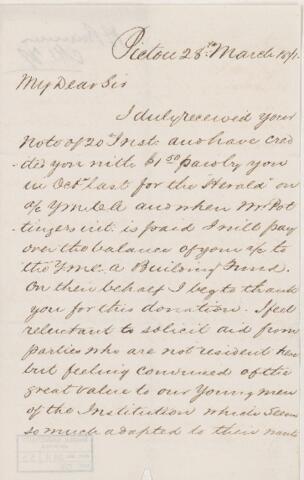 Pictou 28th March 187
My Dear Sir
I duly received your
note of 20 Inst. and have cred
-ited you with $1.50 paid by you
in Octr last for the "Herald" on
a/c Y M C A and when Mr Pot
tingers int. is paid I will pay
over the balance of your a/c to
the Y.M.C.A Building Fund.
On their behalf I beg to thank
you for this donation. I feel
reluctant to solicit aid from
parties who are not resident here
but feeling convinced of the
great value to our Young men
of the Institution which seems
so much adapted to their wants